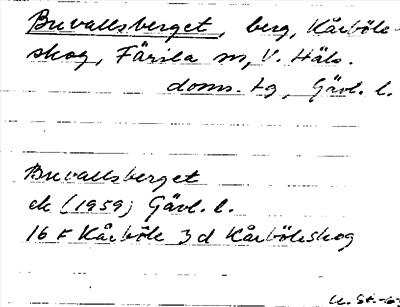 Buvallsberget, berg, Kårböle-
skog, Färila sn, V. Häls.
doms. tg, Gävl. l.
Buvallsberget
ek (1959) Gävl. l.
16 F Kårböle 3 d Kårböleskog